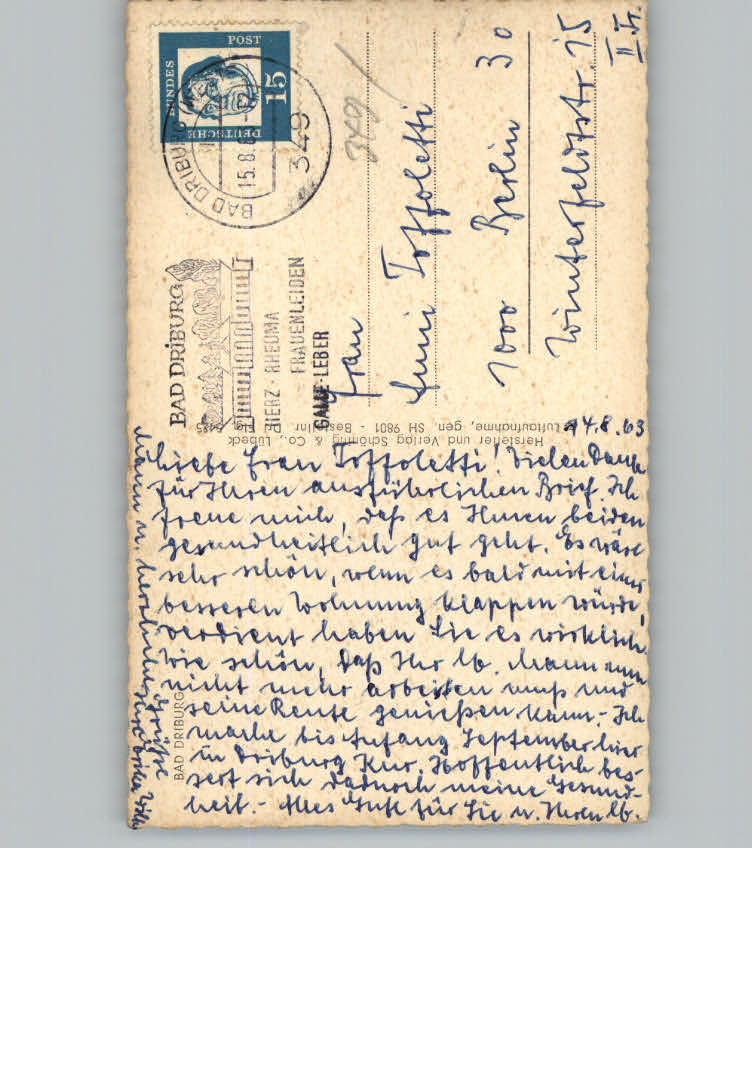 DEUTSCHE
BUNDES
POST
15
BAD DRIBURG
15.8.6
349
BAD DRIBURG
HERZ · RHEUMA
FRAUENLEIDEN
GALLE · LEBER
349
Frau
Toffoletti
1000 Berlin 30
Winterfeldtstr. 15
II Tr.
Hersteller und Verlag Schöning & Co., Lübeck
Luftaufnahme, gen. SH 9801 - Bestellnr.
BAD DRIBURG
14.8.63
Liebe Frau Toffoletti! Vielen Dank
für Ihren ausführlichen Brief. Ich
freue mich, daß es Ihnen beiden
gesundheitlich gut geht. Es wäre
sehr schön, wenn es bald mit einer
besseren Wohnung klappen würde,
verdient haben Sie es wirklich.
Wie schön, daß Ihr lb. Mann nun
nicht mehr arbeiten muß und
seine Rente genießen kann. - Ich
mache bis Anfang September hier
in Driburg Kur. Hoffentlich bes-
sert sich dadurch meine Gesund-
heit. - Alles Gute für Sie u. Ihren lb.
Mann u. herzlichste Grüße
Ihre